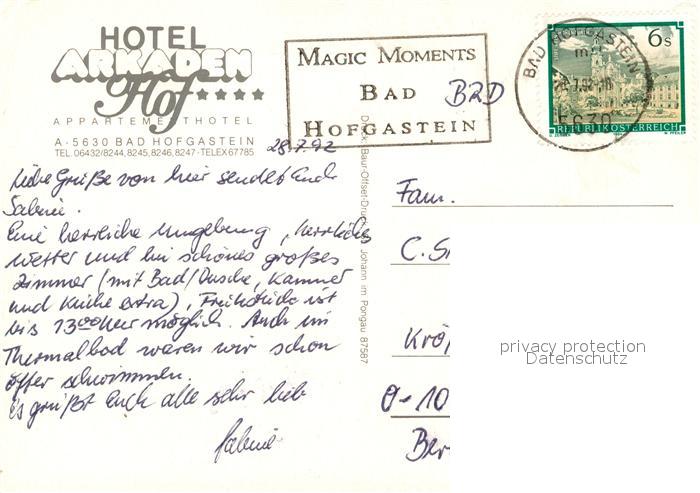 HOTEL
ARKADEN
Hof ★★★★
APPARTEMENTHOTEL
A-5630 BAD HOFGASTEIN
TEL. 06432/8244, 8245, 8246, 8247 · TELEX 67785
MAGIC MOMENTS
BAD
HOFGASTEIN
BRD
BAD HOFGASTEIN
5630
6s
REPUBLIK ÖSTERREICH
28.7.92
Liebe Grüße von hier sendet Euch
Sabine.
Eine herrliche Umgebung, herrliches
Wetter und ein schönes großes
Zimmer (mit Bad/Dusche, Kammer
und Küche extra), Frühstück ist
bis 13 00 Uhr möglich. Auch im
Thermalbad waren wir schon
öfter schwimmen.
Es grüßt Euch alle sehr lieb
Sabine
Baur-Offset-Druck Johann im Pongau 87587
Fam.
C. S
Krö
O-10
Ber
privacy protection
Datenschutz